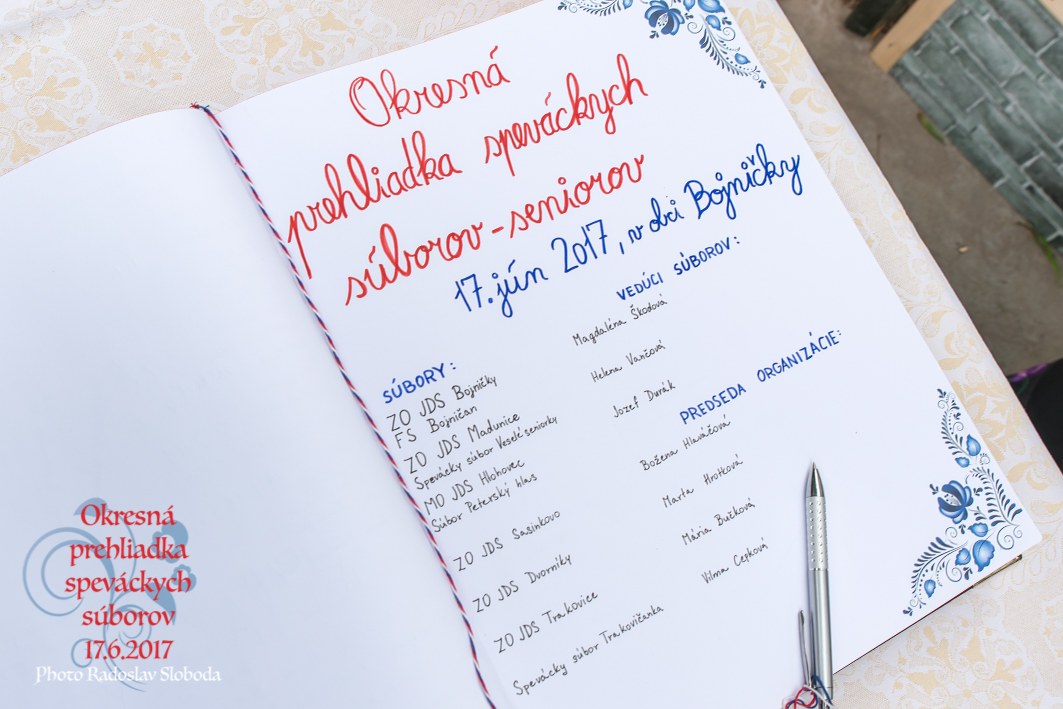 Okresná
prehliadka speváckych
súborov-seniorov
17. jún 2017, v obci Bojničky
SÚBORY:
ZO JDS Bojničky
FS Bojničan
ZO JDS Madunice
Spevácky súbor Veselé seniorky
MO JDS Hlohovec
Súbor Peterský hlas
ZO JDS Sasinkovo
ZO JDS Dvorníky
ZO JDS Trakovice
Spevácky súbor Trakovičanka
VEDÚCI SÚBOROV:
Magdaléna Škodová
Helena Vančová
Jozef Durák
PREDSEDA ORGANIZÁCIE:
Božena Hlaváčová
Marta Hrotková
Mária Bučková
Vilma Cepková
Okresná
prehliadka
speváckych
súborov
17.6.2017
Photo Radoslav Sloboda